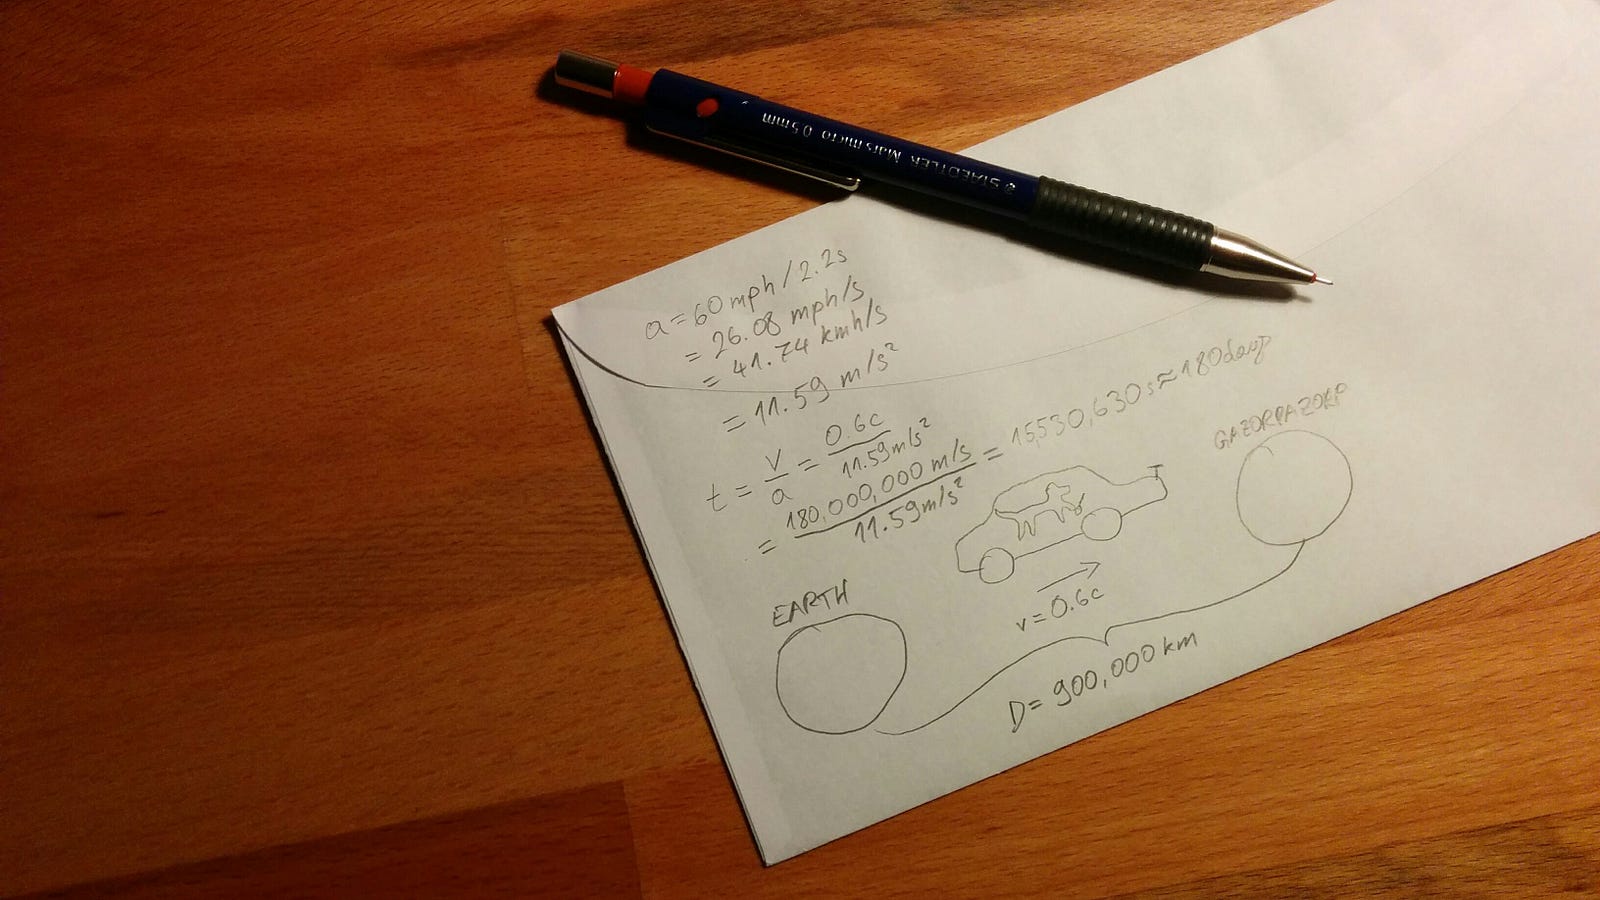 STAEDTLER Mars micro 0.5mm
a = 60 mph / 2.2s
= 26.08 mph/s
= 41.74 kmh/s
= 11.59 m/s²
t = v/a = 0.6c / 11.59m/s²
= 180,000,000 m/s / 11.59m/s² = 15,530,630 s ≈ 180 days
GAZORPAZORP
EARTH
v = 0.6c
D = 900,000 km